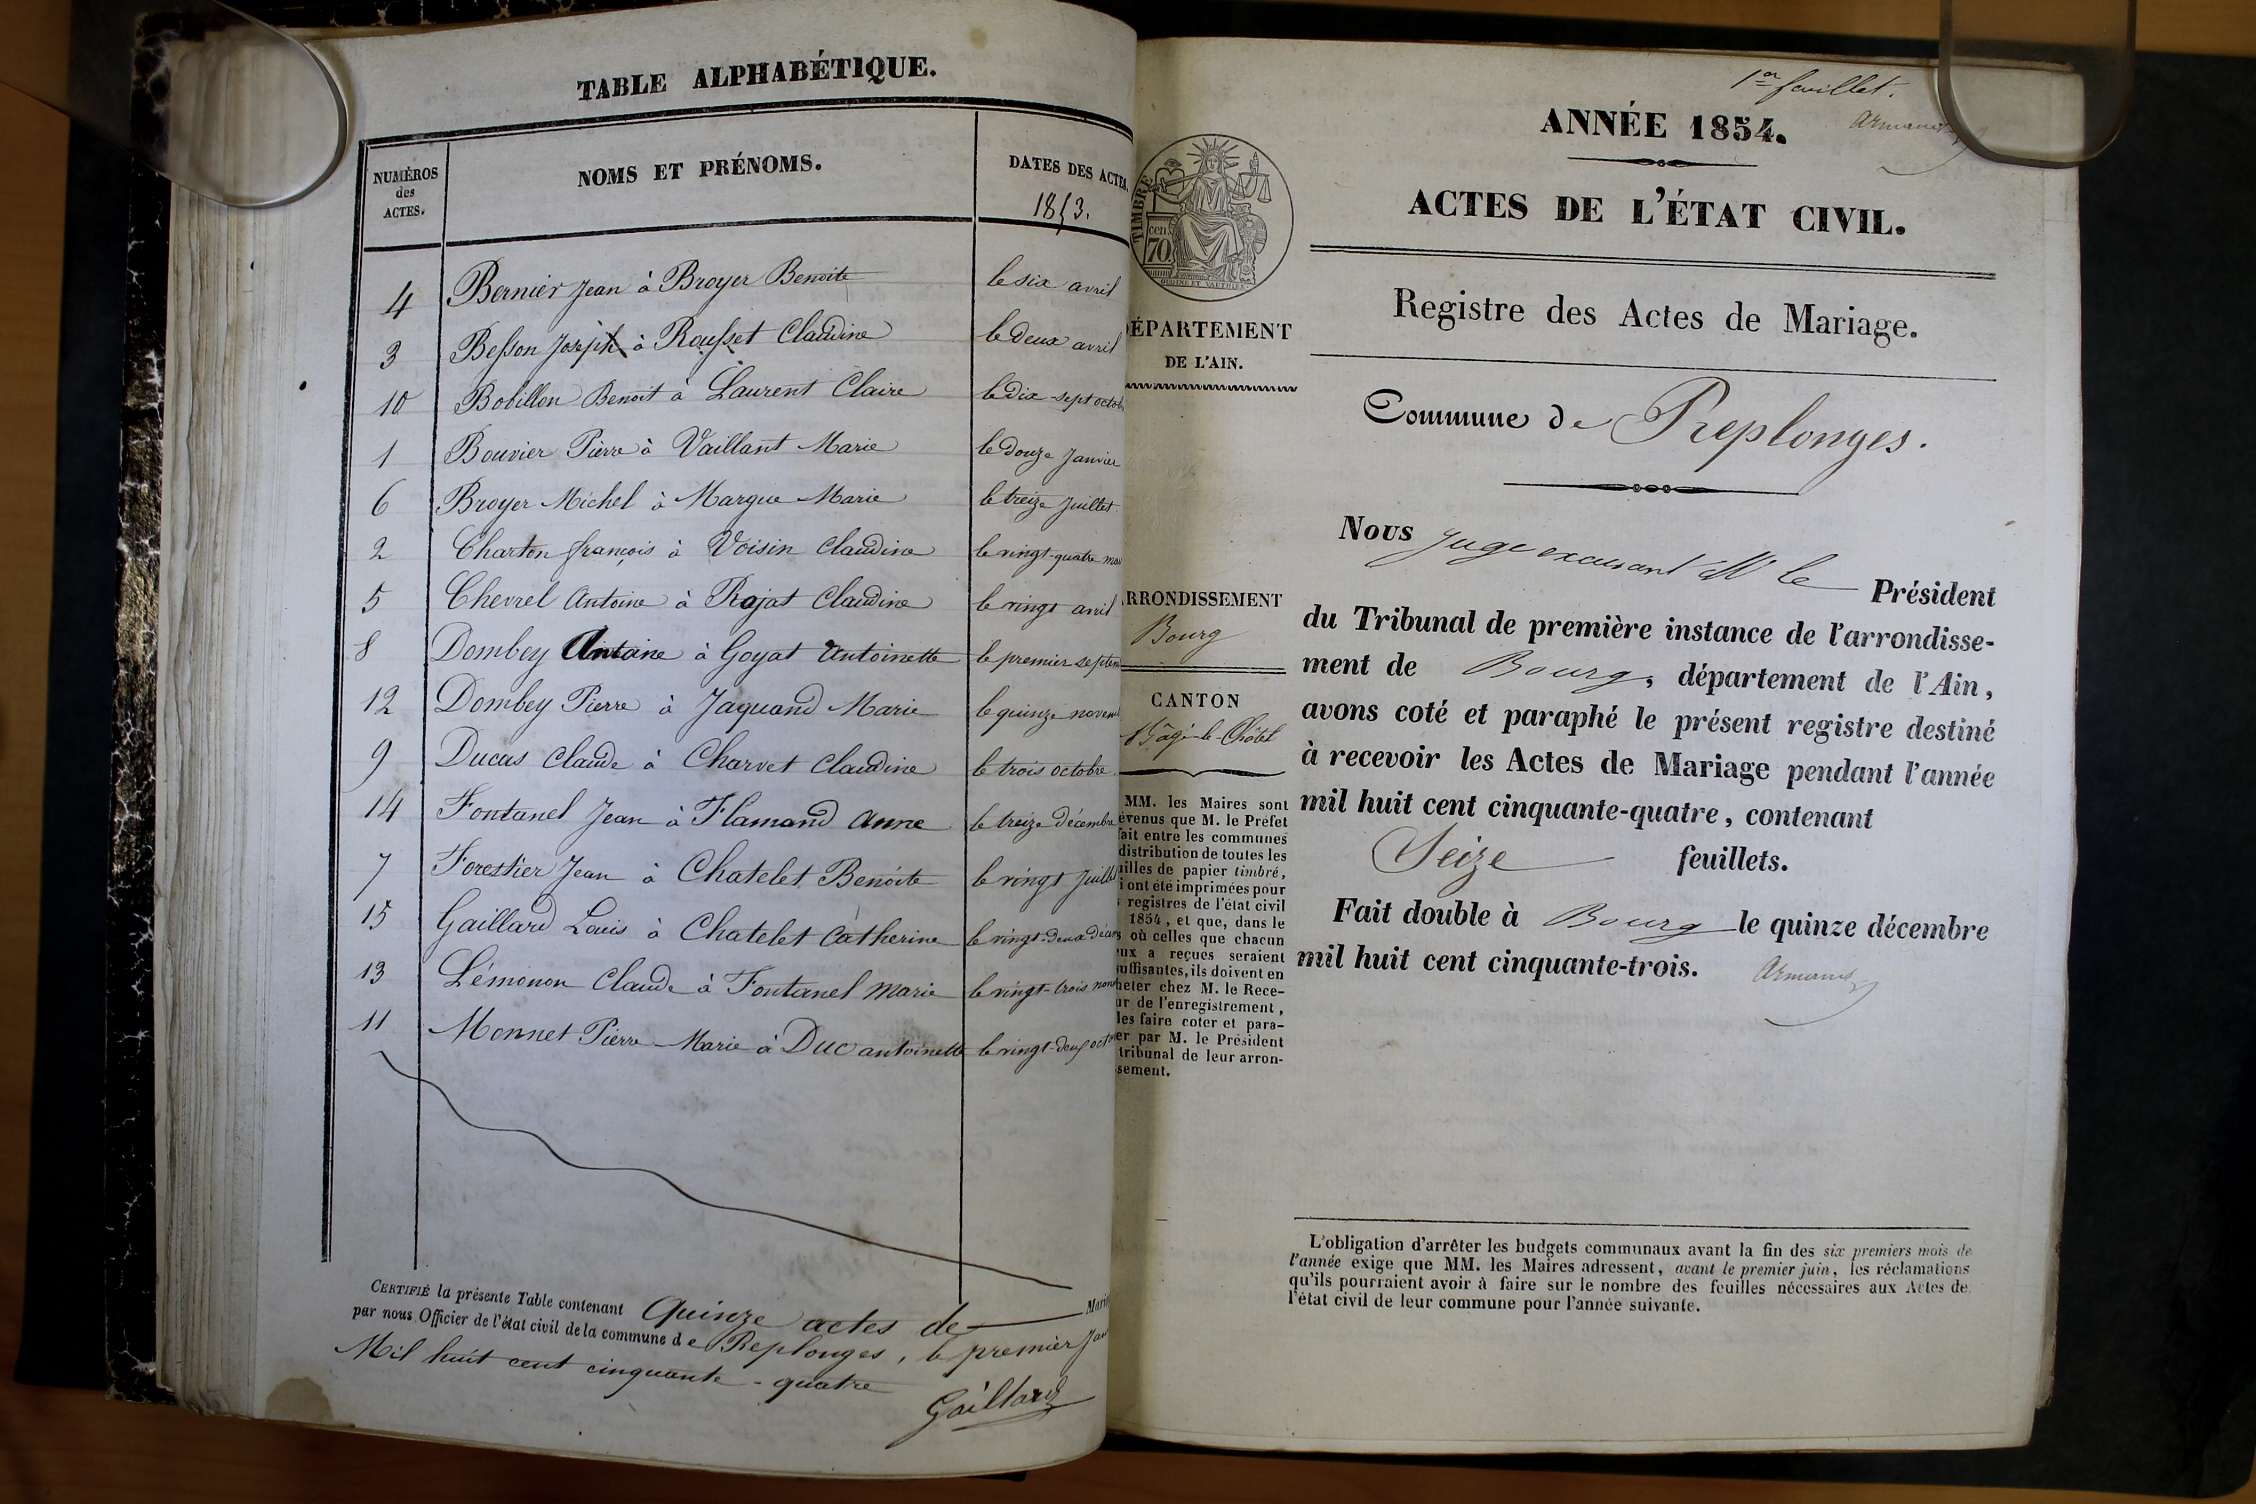 TABLE ALPHABÉTIQUE.
NUMÉROS des ACTES. NOMS ET PRÉNOMS. DATES DES ACTES.
1853.
4 Bernier Jean à Broyer Benoite le six avril
3 Besson Joseph à Rousset Claudine le deux avril
10 Bobillon Benoit à Laurent Claire le dix-sept octob
1 Bouvier Pierre à Vaillant Marie le douze Janvier
6 Broyer Michel à Margue Marie le treize Juillet
2 Charton françois à Voisin Claudine le vingt-quatre
5 Chevrel Antoine à Rojat Claudine le vingt avril
8 Dombey Antoine à Goyat Antoinette le premier septem
12 Dombey Pierre à Jaquand Marie le quinze novem
9 Ducas Claude à Charvet Claudine le trois octobre
14 Fontanel Jean à Flamand Anne le treize décembre
7 Forestier Jean à Chatelet Benoite le vingt Juillet
15 Gaillard Louis à Chatelet Catherine le vingt-deux décem
13 Lémonon Claude à Fontanel Marie le vingt-trois nov
11 Monnet Pierre-Marie à Duc antoinette le vingt-deux octo
CERTIFIÉ la présente Table contenant Quinze actes de Maria
par nous Officier de l'état civil de la commune de Replonges, le premier Jan
Mil huit cent cinquante-quatre
Gaillard
1er feuillet.
ANNÉE 1854.
ACTES DE L'ÉTAT CIVIL.
TIMBRE
cen.
70
Registre des Actes de Mariage.
DÉPARTEMENT
DE L'AIN.
Commune de Replonges.
RRONDISSEMENT
Bourg
CANTON
Bâgé-le-Châtel
MM. les Maires sont
évenus que M. le Préfet
fait entre les communes
distribution de toutes les
uilles de papier timbré,
i ont été imprimées pour
registres de l'état civil
1854, et que, dans le
s où celles que chacun
eux a reçues seraient
uffisantes, ils doivent en
heter chez M. le Rece-
ur de l'enregistrement,
les faire coter et para-
er par M. le Président
tribunal de leur arron-
sement.
Nous Juge excusant Mr le Président
du Tribunal de première instance de l'arrondisse-
ment de Bourg, département de l'Ain,
avons coté et paraphé le présent registre destiné
à recevoir les Actes de Mariage pendant l'année
mil huit cent cinquante-quatre, contenant
Seize feuillets.
Fait double à Bourg le quinze décembre
mil huit cent cinquante-trois.
L'obligation d'arrêter les budgets communaux avant la fin des six premiers mois de
l'année exige que MM. les Maires adressent, avant le premier juin, les réclamations
qu'ils pourraient avoir à faire sur le nombre des feuilles nécessaires aux Actes de
l'état civil de leur commune pour l'année suivante.